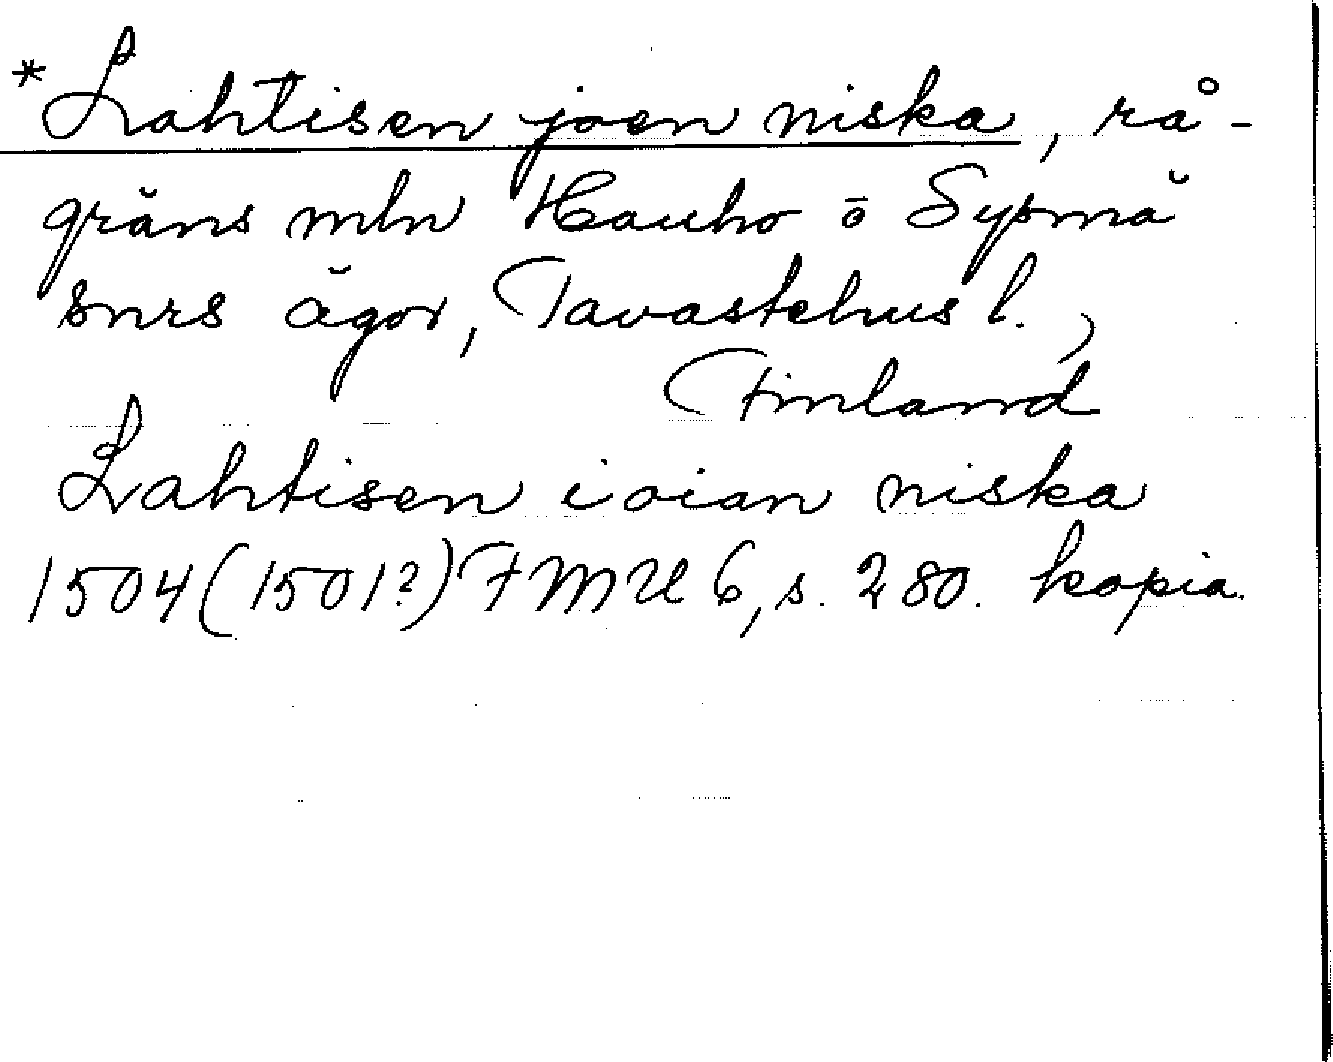 *Lahtisen joen niska, rå-
gräns mln Hauho ō Sysmä
snrs ägor, Tavastehus l.,
Finland
Lahtisen ioian niska
1504 (1501?) FMU 6, s. 280. kopia.